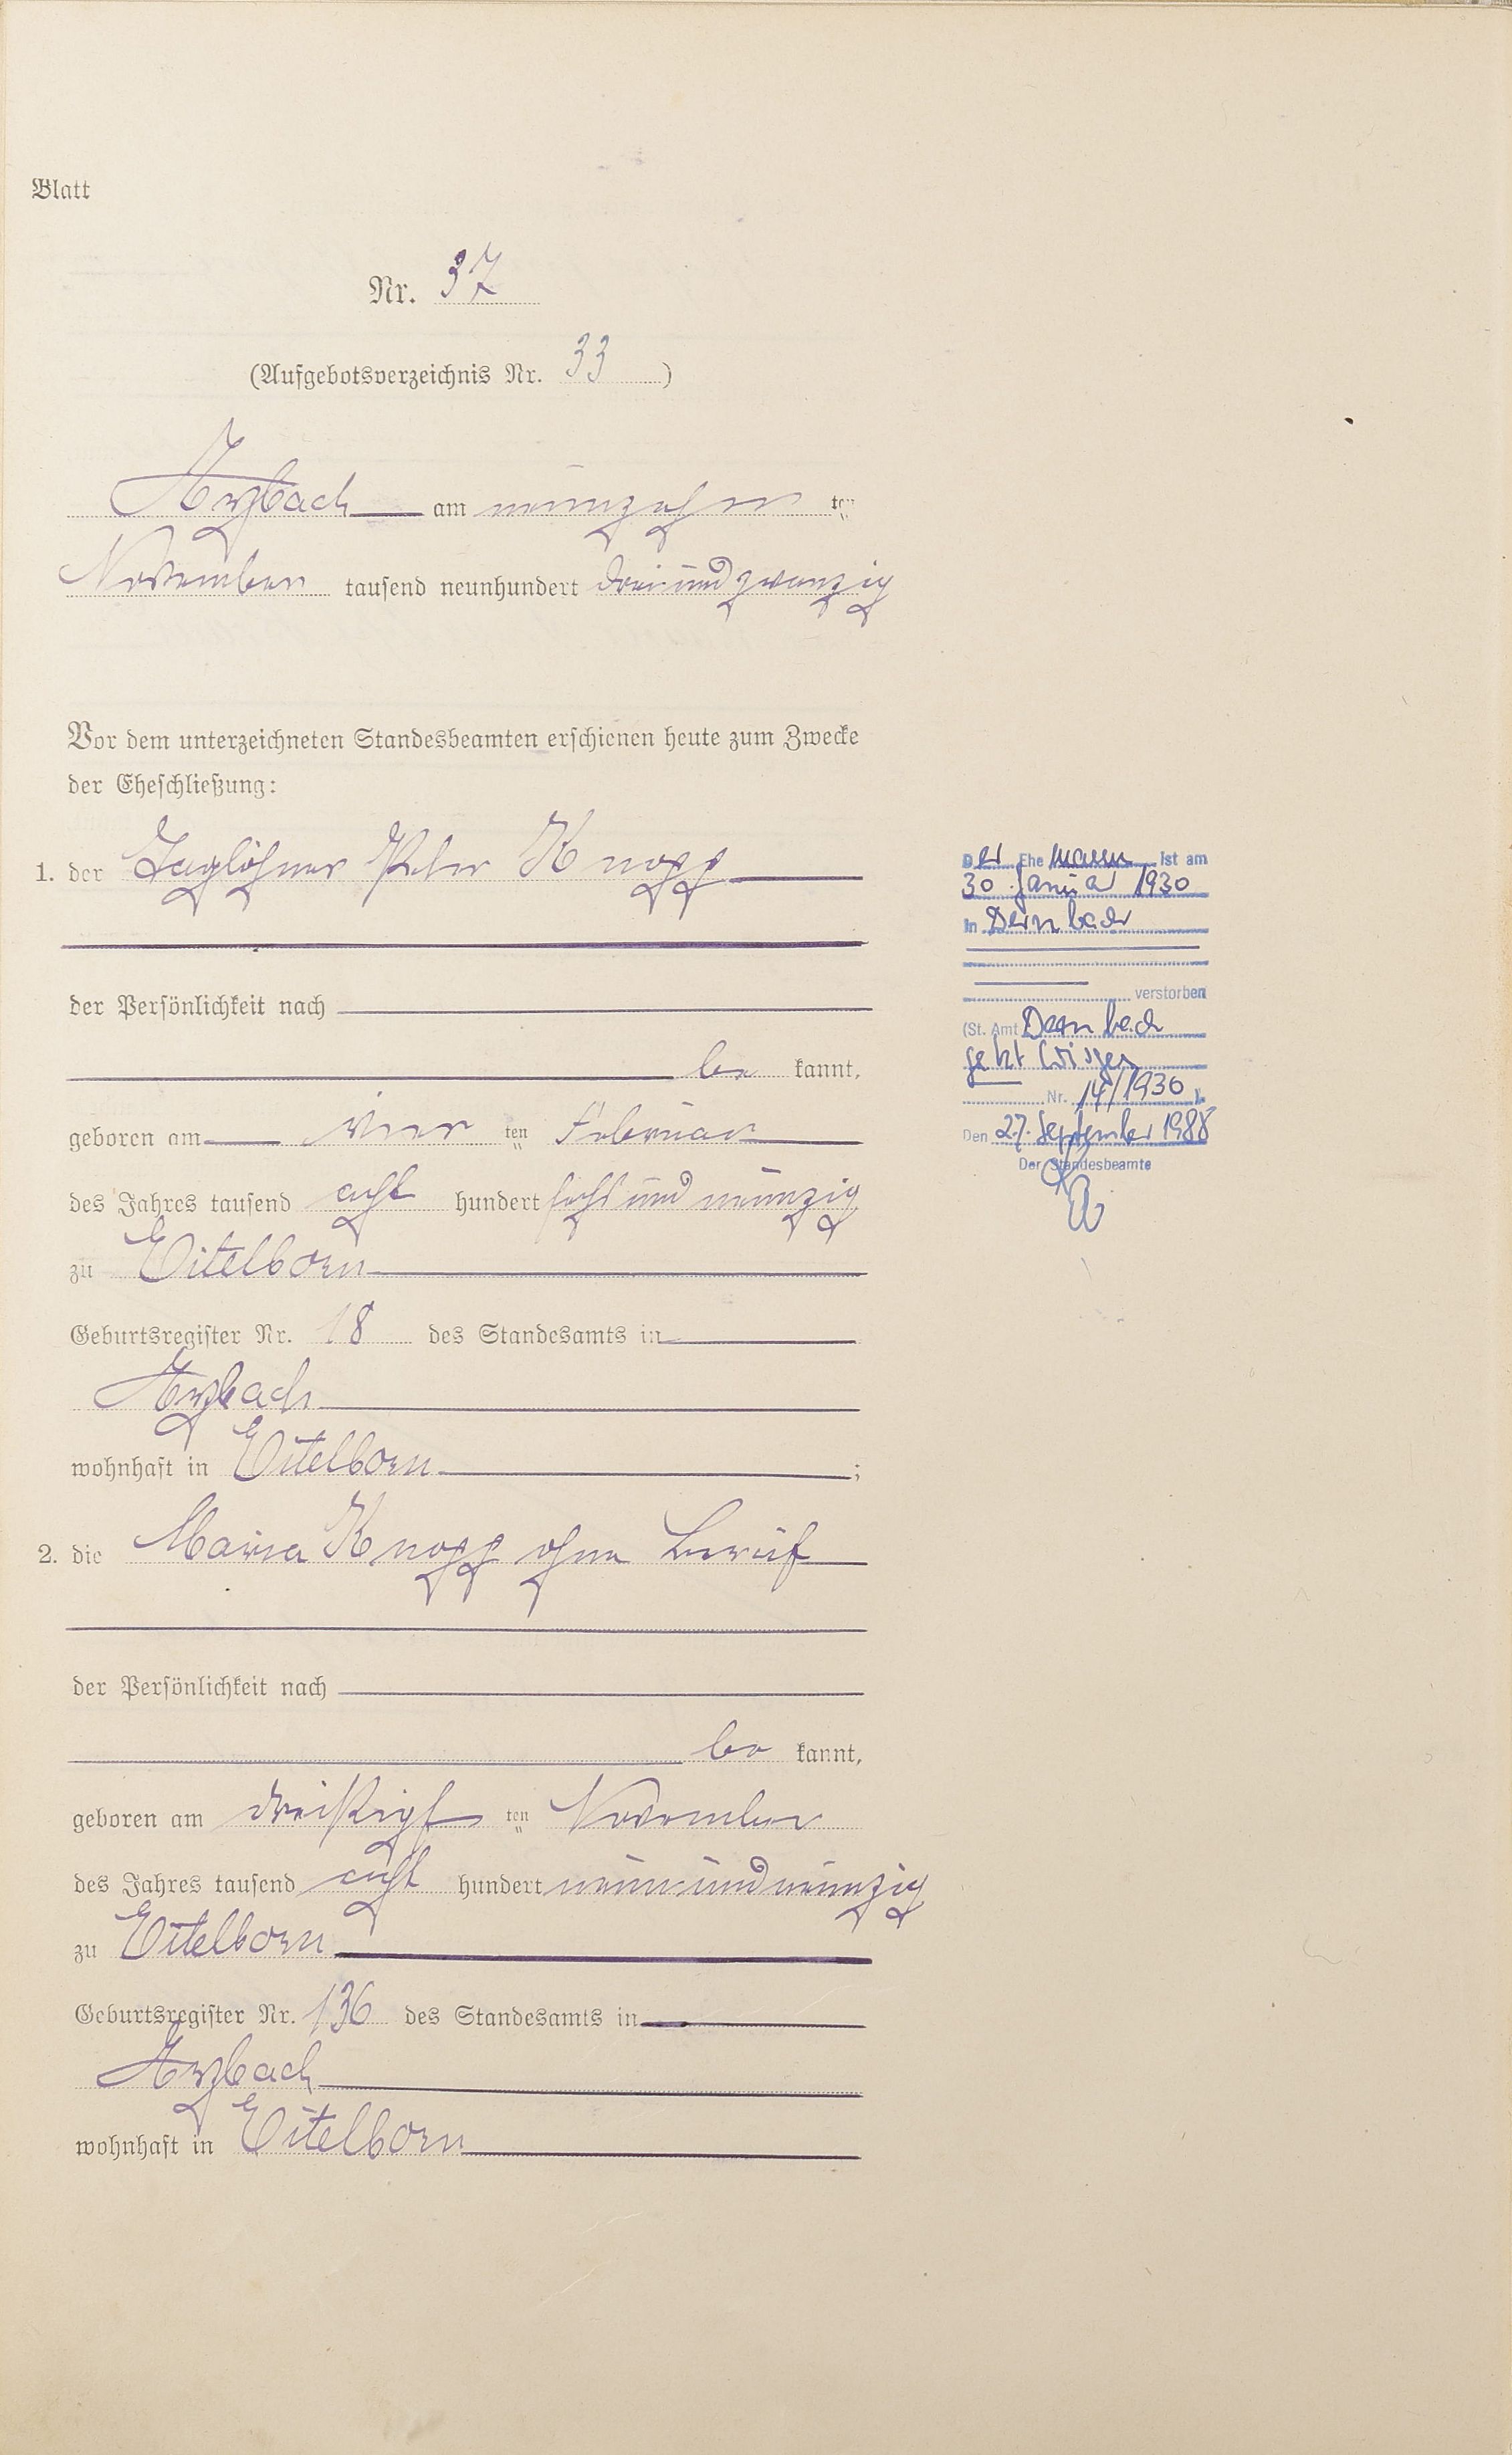 Blatt
Nr. 37
(Aufgebotsverzeichnis Nr. 33)
Arzbach am neunzehn ten
November tausend neunhundert dreiundzwanzig
Vor dem unterzeichneten Standesbeamten erschienen heute zum Zwecke
der Eheschließung:
1. der Taglöhner Peter Knopp
der Persönlichkeit nach
be kannt,
geboren am vier ten Februar
des Jahres tausend acht hundert sechs und neunzig
zu Eitelborn
Geburtsregister Nr. 18 des Standesamts in
Arzbach
wohnhaft in Eitelborn;
2. die Maria Knopp ohne Beruf
der Persönlichkeit nach
be kannt,
geboren am dreißigs ten November
des Jahres tausend acht hundert neunundneunzig
zu Eitelborn
Geburtsregister Nr. 136 des Standesamts in
Arzbach
wohnhaft in Eitelborn
Der Ehemann ist am
30. Januar 1930
in Dernbach
verstorben
(St. Amt Dernbach
jetzt Wirges
Nr. 14/1930).
Den 27. September 1988
Der Standesbeamte